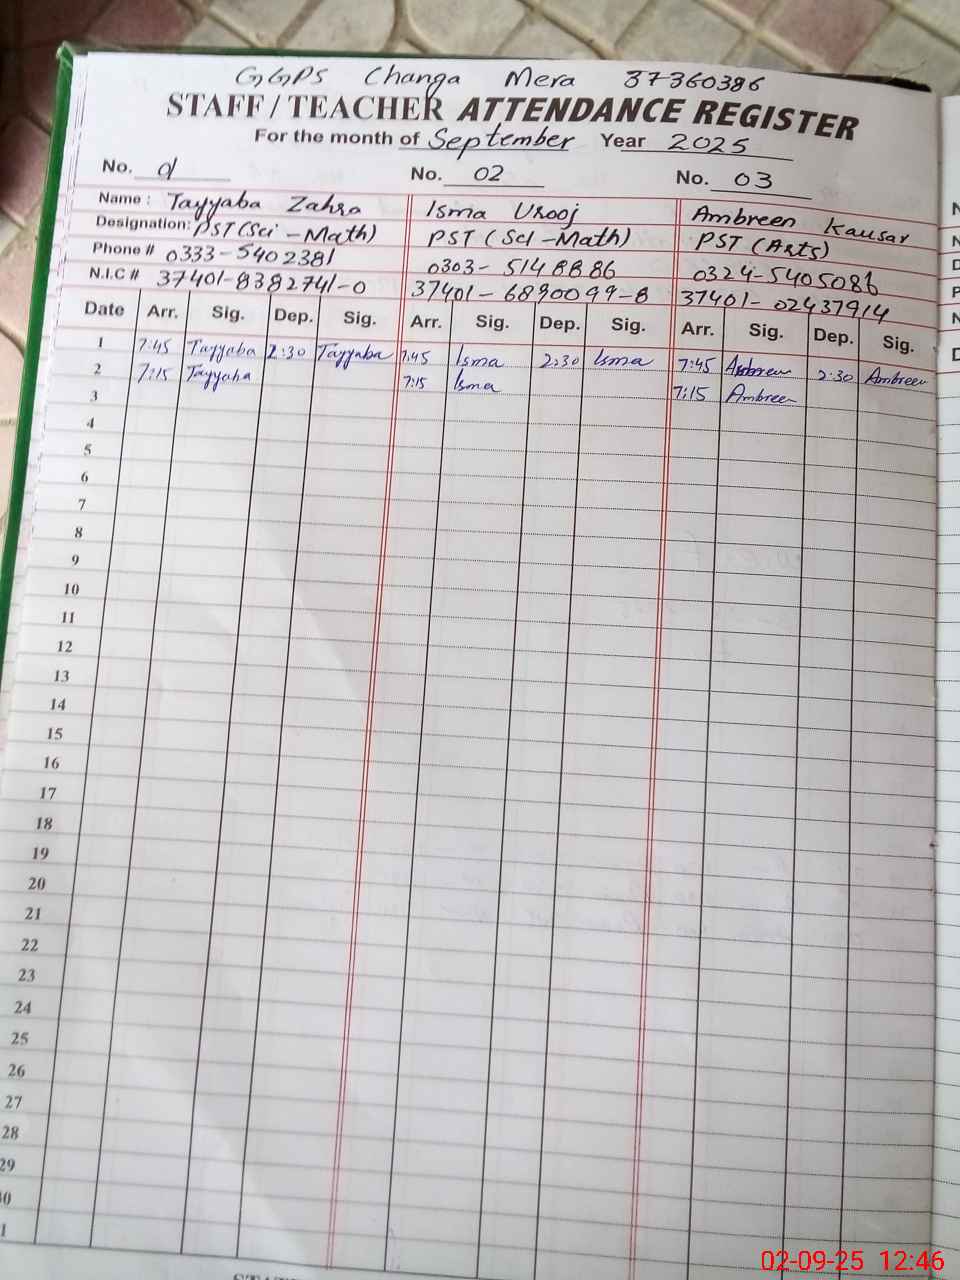 GGPS Changa Mera 37360386
STAFF / TEACHER ATTENDANCE REGISTER
For the month of September Year 2025
No. 01 No. 02 No. 03
Name : Tayyaba Zahra Isma Urooj Ambreen Kausar
Designation: PST (Sci - Math) PST (Sci - Math) PST (Arts)
Phone # 0333-5402381 0303-5148886 0324-5405086
N.I.C # 37401-8382741-0 37401-6890099-8 37401-02437914
Date Arr. Sig. Dep. Sig. Arr. Sig. Dep. Sig. Arr. Sig. Dep. Sig.
1 7:45 Tayyaba 2:30 Tayyaba 7:45 Isma 2:30 Isma 7:45 Ambreen 2:30 Ambreen
2 7:15 Tayyaba 7:15 Isma 7:15 Ambreen
3
4
5
6
7
8
9
10
11
12
13
14
15
16
17
18
19
20
21
22
23
24
25
26
27
28
29
30
31
02-09-25 12:46